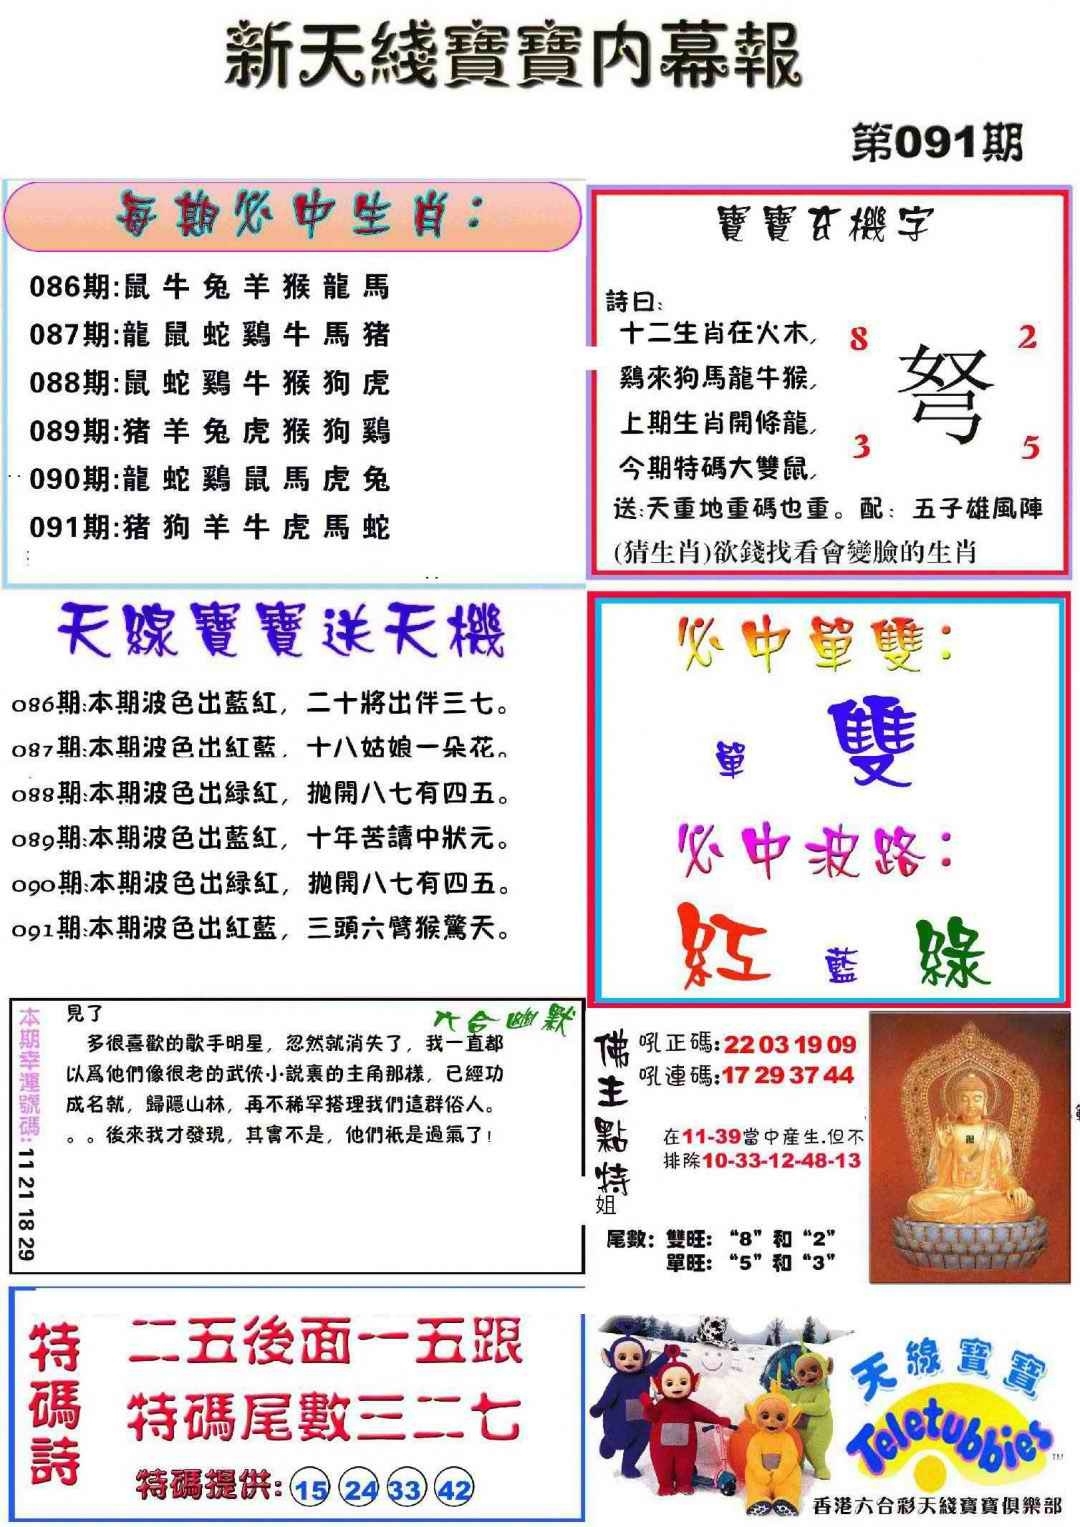 新天綫寶寶内幕報
第091期
每期必中生肖：
086期:鼠 牛 兔 羊 猴 龍 馬
087期:龍 鼠 蛇 鷄 牛 馬 猪
088期:鼠 蛇 鷄 牛 猴 狗 虎
089期:猪 羊 兔 虎 猴 狗 鷄
090期:龍 蛇 鷄 鼠 馬 虎 兔
091期:猪 狗 羊 牛 虎 馬 蛇
寶寶玄機字
詩曰:
十二生肖在火木,
鷄來狗馬龍牛猴,
上期生肖開條龍,
今期特碼大雙鼠,
8 2
弩
3 5
送:天重地重碼也重。配：五子雄風陣
(猜生肖)欲錢找看會變臉的生肖
天線寶寶送天機
086期:本期波色出藍紅，二十將出伴三七。
087期:本期波色出紅藍，十八姑娘一朵花。
088期:本期波色出緑紅，抛開八七有四五。
089期:本期波色出藍紅，十年苦讀中狀元。
090期:本期波色出緑紅，抛開八七有四五。
091期:本期波色出紅藍，三頭六臂猴驚天。
必中單雙：
單 雙
必中波路：
紅 藍 綠
本期幸運號碼: 11 21 18 29
六合幽默
見了
多很喜歡的歌手明星，忽然就消失了，我一直都
以爲他們像很老的武俠小説裏的主角那樣，已經功
成名就，歸隱山林，再不稀罕搭理我們這群俗人。
。。後來我才發現，其實不是，他們衹是過氣了!
佛主點特
姐
吼正碼:22 03 19 09
吼連碼:17 29 37 44
在11-39當中産生.但不
排除10-33-12-48-13
尾數：雙旺：“8”和“2”
單旺：“5”和“3”
特碼詩
二五後面一五跟
特碼尾數三二七
特碼提供: 15 24 33 42
天線寶寶
Teletubbies
TM
香港六合彩天綫寶寶俱樂部